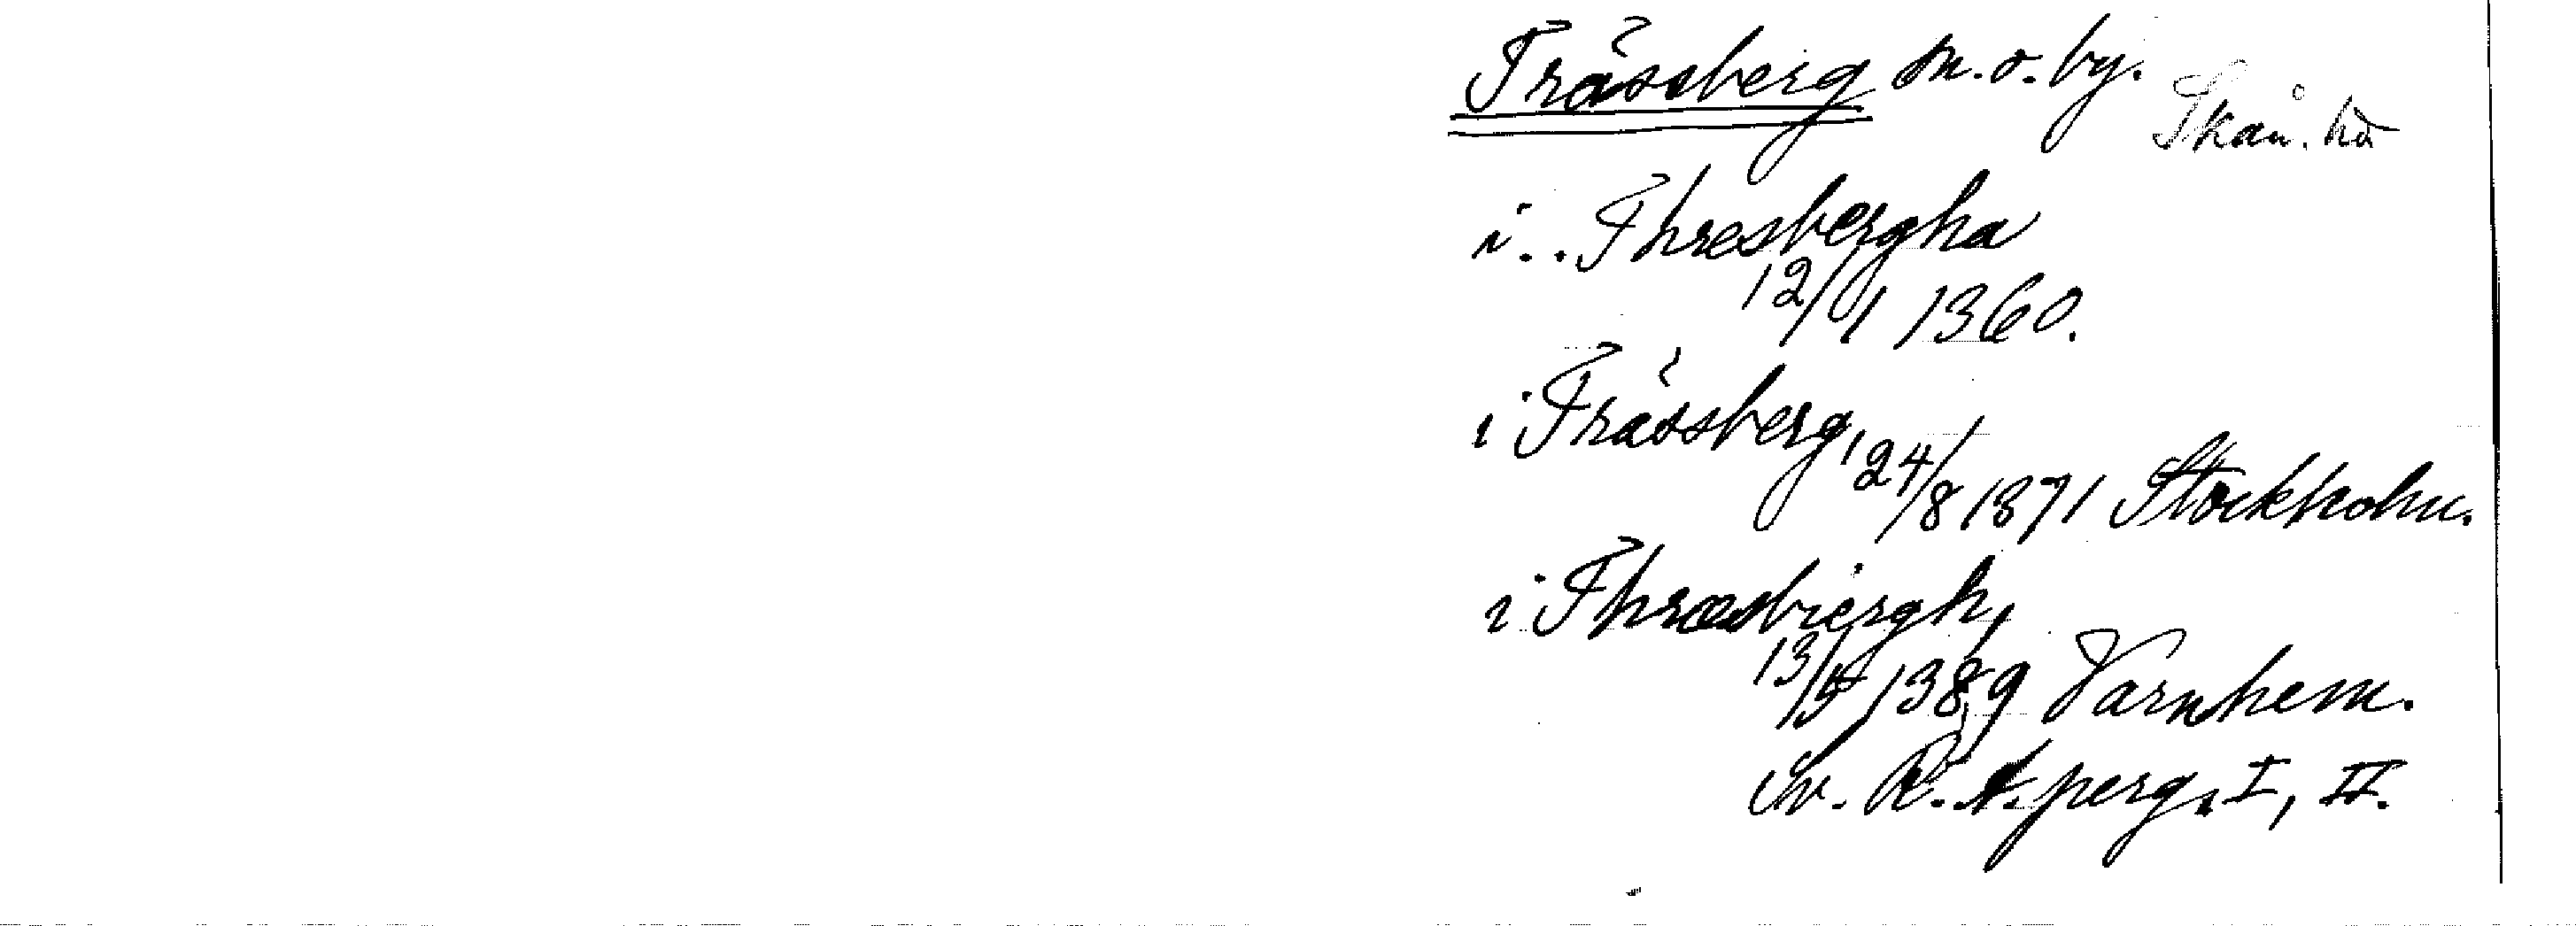 Trässberg sn. o. by.
Skån. hd
i .. Thresbergha
12/1 1360.
i Trässberg, 24/8 1371 Stockholm.
i Thræsbiergh,
13/5 1389 Varnhem.
Sv. R. A. perg. I, II.